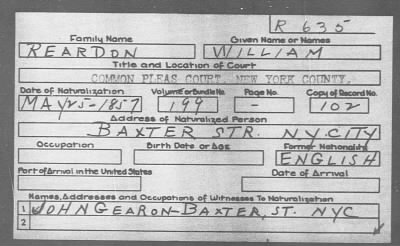 R 635
Family Name Given Name or Names
REARDON WILLIAM
Title and Location of Court
COMMON PLEAS COURT, NEW YORK COUNTY.
Date of Naturalization Volume or Bundle No. Page No. Copy of Record No.
MAY 25-1857 199 - 102
Address of Naturalized Person
BAXTER STR. N.Y. CITY
Occupation Birth Date or Age Former Nationality
ENGLISH
Port of Arrival in the United States Date of Arrival
Names, Addresses and Occupations of Witnesses To Naturalization
1 JOHN GEARON-BAXTER, ST. NYC
2